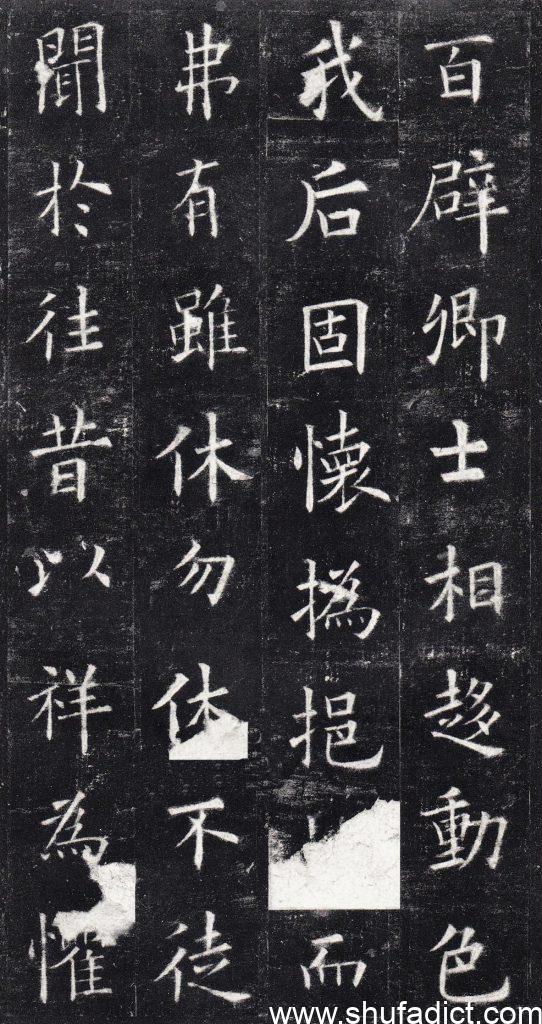 百辟卿士相趍動色
我后固懷撝挹而
弗有雖休勿休不徒
聞於往昔以祥為懼
www.shufadict.com